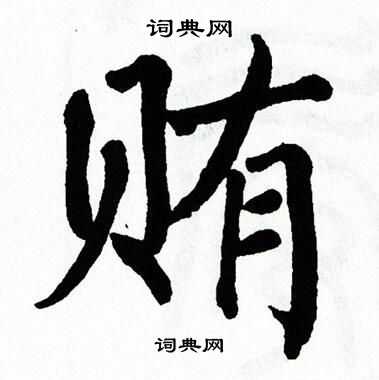 词典网
贿
词典网